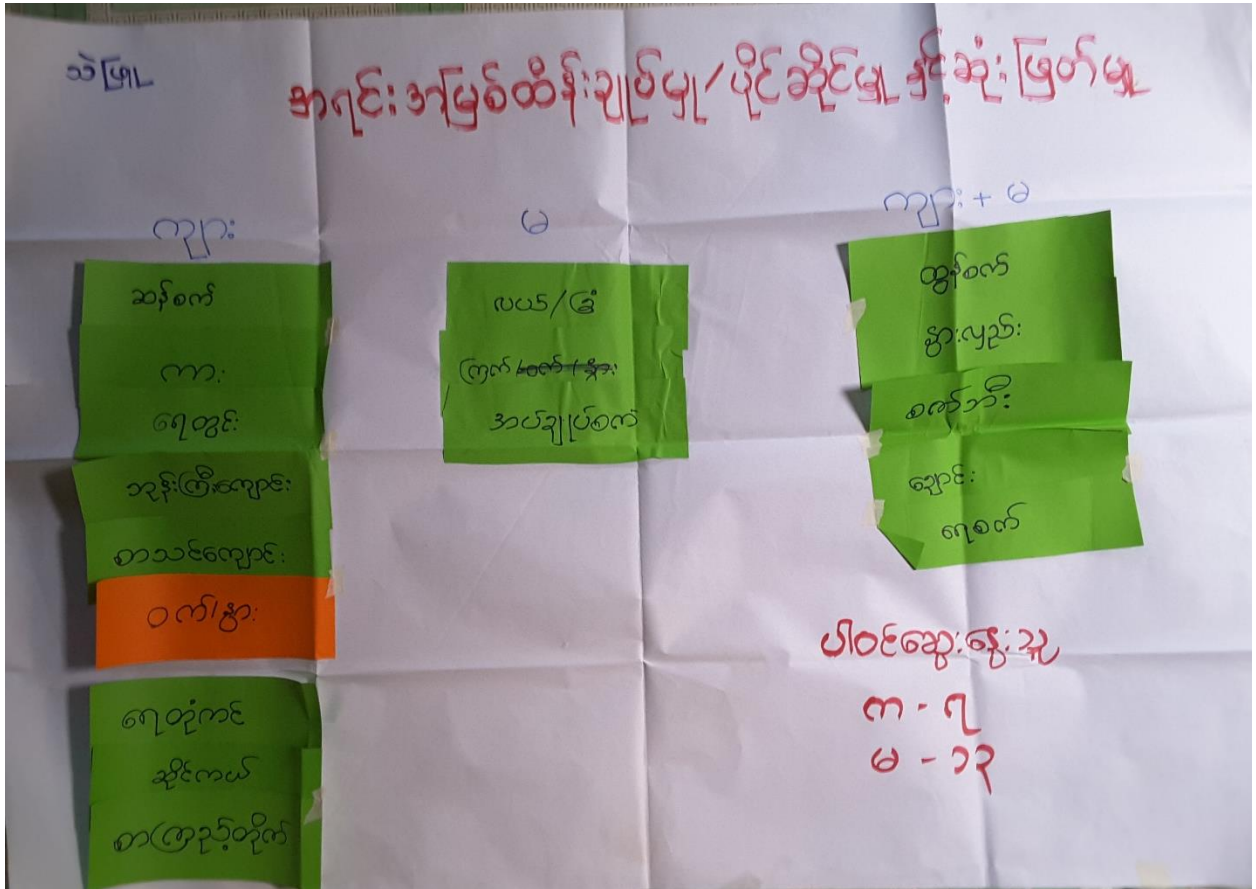 သဲဖြူ
အရင်းအမြစ်ထိန်းချုပ်မှု/ပိုင်ဆိုင်မှု နှင့်ဆုံးဖြတ်မှု
ကျား
ဆန်စက်
ကား
ရေတွင်း
ဘုန်းကြီးကျောင်း
စာသင်ကျောင်း
ဝက်/နွား
ရေတုံကင်
ဆိုင်ကယ်
စာကြည့်တိုက်
မ
လယ်/ခြံ
ကြက်/ဝက်/နွား
အပ်ချုပ်စက်
ကျား + မ
ထွန်စက်
နွားလှည်း
စက်ဘီး
ချောင်း
ရေစက်
ပါဝင်ဆွေးနွေးသူ
က - ၇
မ - ၁၃